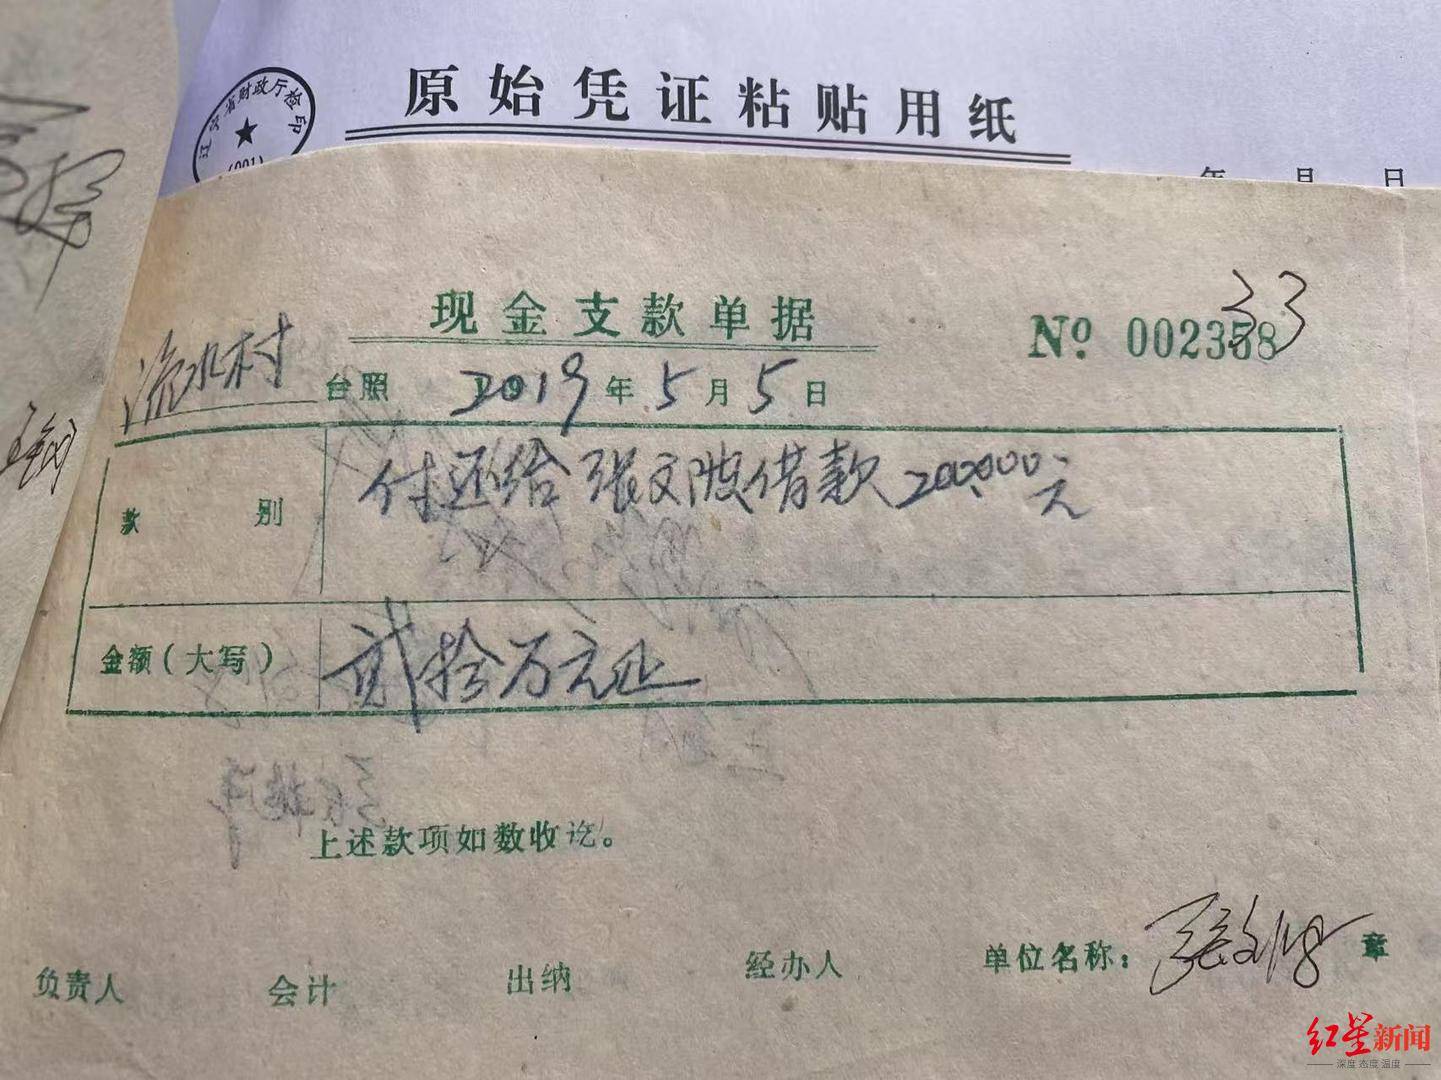 原始凭证粘贴用纸
辽宁省财政厅检印
(001)
年 月 日
现金支款单据
No. 002358
33
流水村 台照 2019年5月5日
款别 付还给张文波借款200000元
金额(大写) 贰拾万元正
上述款项如数收讫。
负责人 会计 出纳 经办人 单位名称: 张文波 章
红星新闻
深度 态度 温度